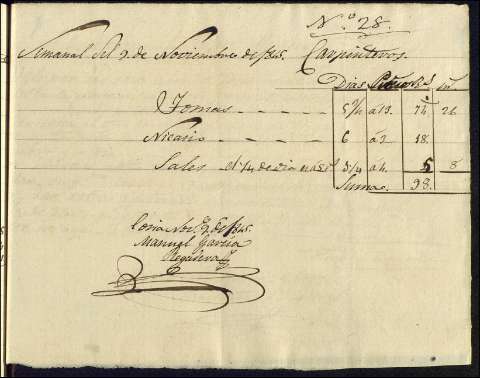 N.º 28.
Semanal del 9. de Noviembre de 1845. Carpinteros.
Dias Precio Rs mrs
Tomas 5 3/4 á 13. 74 26
Nicasio 6 á 3 18.
Sales el 1/4 de dia 3/4 á 5 8
Suma. 98.
Coria Nov.e 9 de 1845.
Manuel García
Regidera